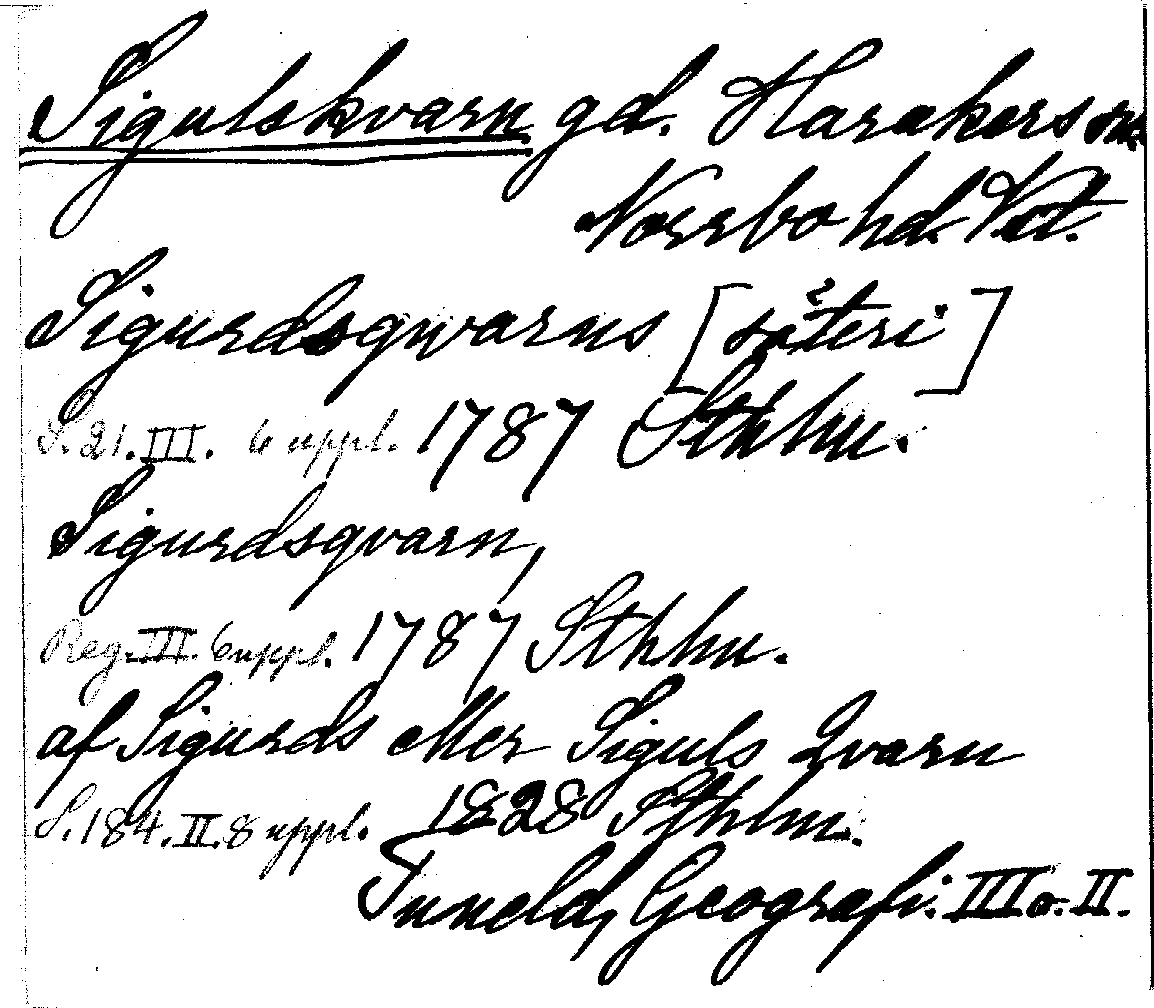 Sigulskvarn gd. Harakers sn.
Norrbo hd. Vstl.
Sigurdsqwarns [säteri]
S. 21. III. 6 uppl. 1787 Sthlm.
Sigurdsqvarn,
Reg. III. 6 uppl. 1787 Sthlm.
af Sigurds eller Siguls Qvarn
S. 184. II. 8 uppl. 1828 Sthlm.
Tuneld, Geografi. III o. II.